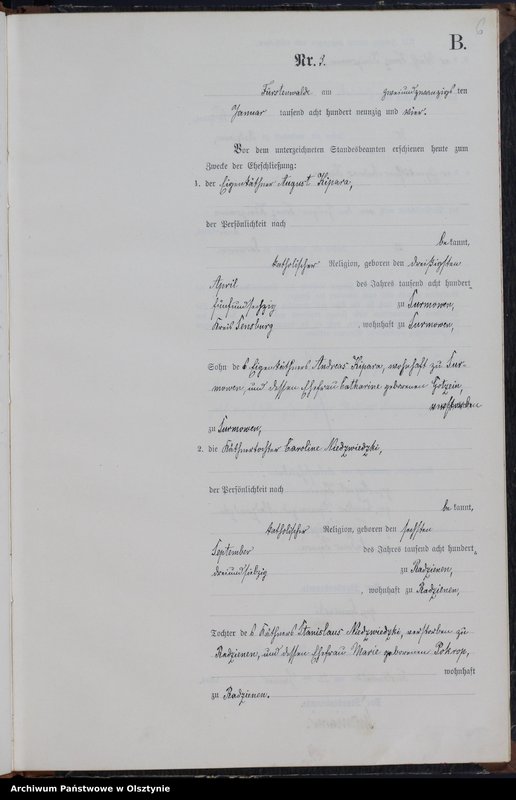 6
B.
Nr. 3.
Fürstenwalde am zweiundzwanzigs ten
Januar tausend acht hundert neunzig und vier.
Vor dem unterzeichneten Standesbeamten erschienen heute zum
Zwecke der Eheschließung:
1. der Eigenkäthner August Kipara,
der Persönlichkeit nach
be kannt,
katholischer Religion, geboren den dreißigsten
April des Jahres tausend acht hundert
fünfundsechzig zu Surmowen,
Kreis Sensburg, wohnhaft zu Surmowen,
Sohn des Eigenkäthners Andreas Kipara, wohnhaft zu Sur-
mowen, und dessen Ehefrau Catharine geborenen
verstorben
zu Surmowen,
2. die Käthnertochter Caroline Niedzwiedzki,
der Persönlichkeit nach
be kannt,
katholischer Religion, geboren den sechsten
September des Jahres tausend acht hundert
dreiundsiebzig zu Radzienen,
, wohnhaft zu Radzienen,
Tochter des Käthners Stanislaus Niedzwiedzki, verstorben zu
Radzienen, und dessen Ehefrau Marie geborenen Pokrop,
wohnhaft
zu Radzienen.
Archiwum Państwowe w Olsztynie